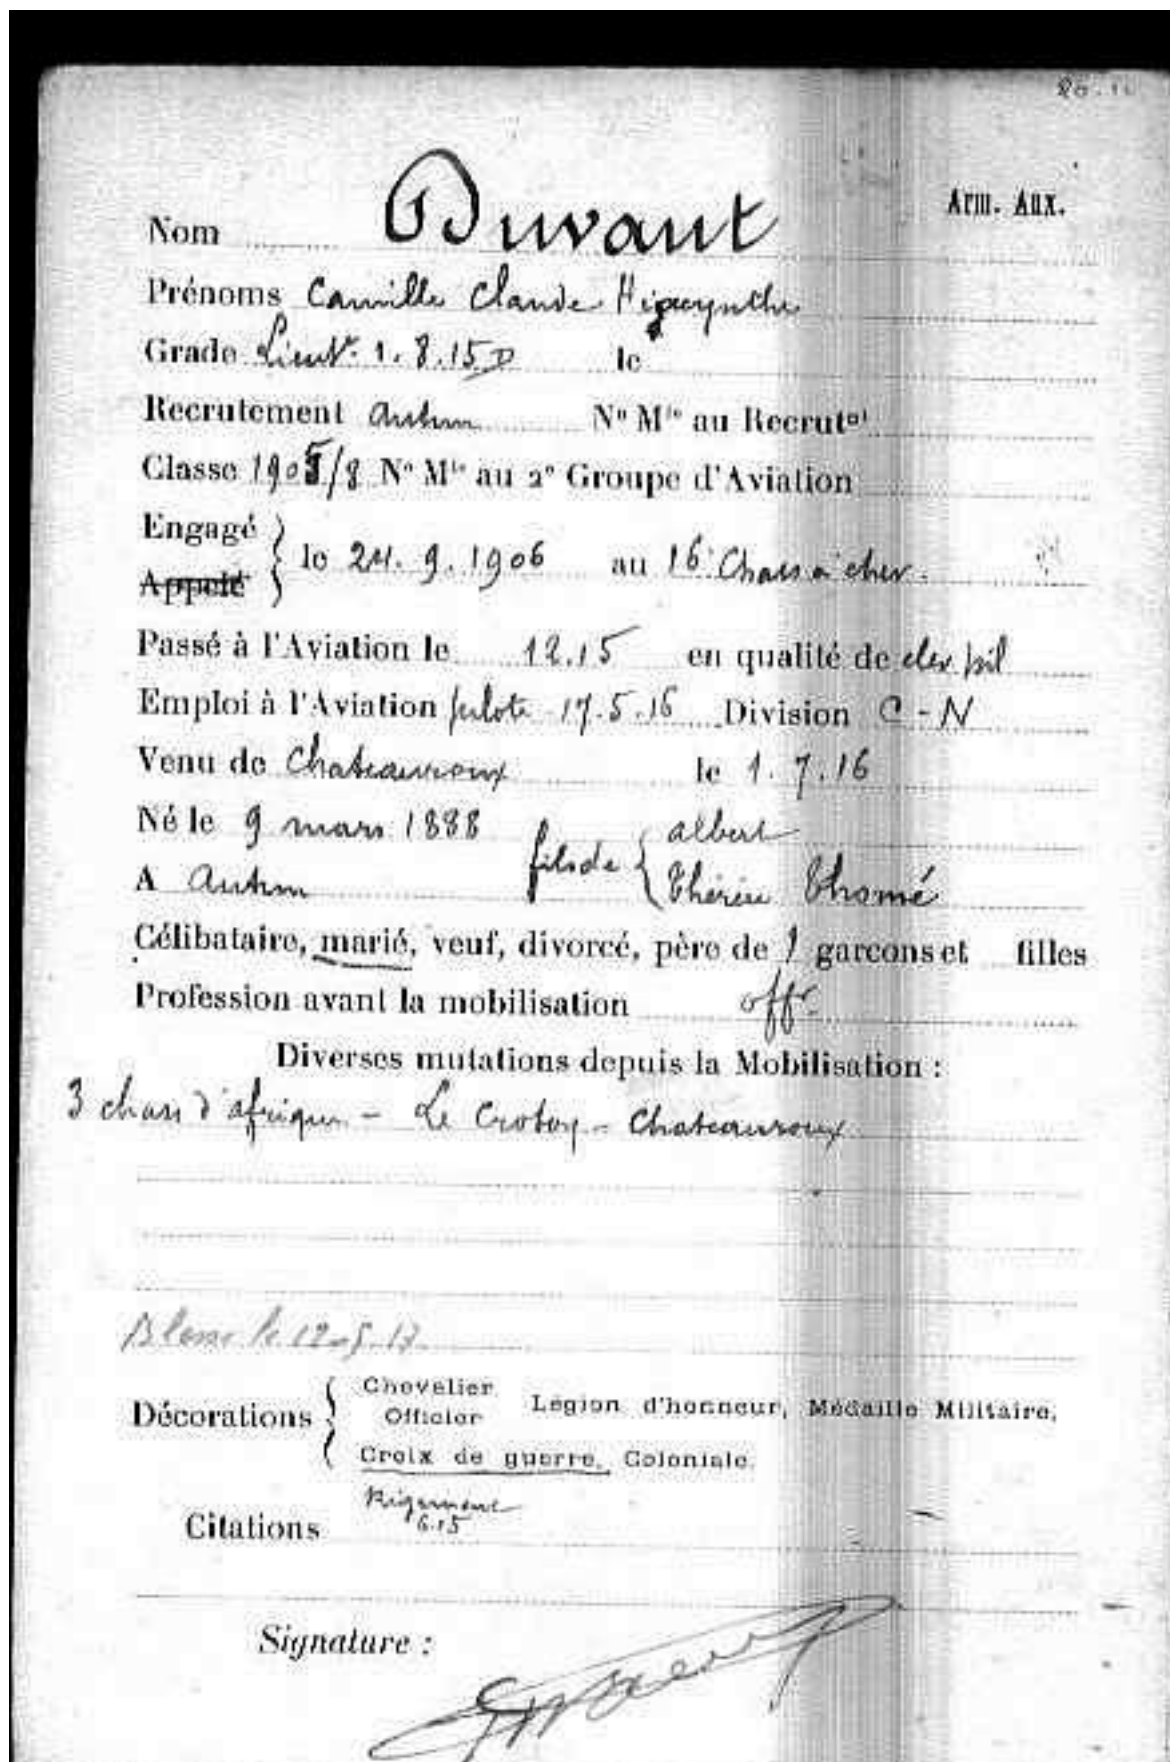 Arm. Aux.
Nom Duvant
Prénoms Camille Claude Higacynthe
Grade Lieut. 1.8.15 D le
Recrutement Autun Nº Mle au Recrutnt
Classe 1905/8 Nº Mle au 2e Groupe d'Aviation
Engagé
Appelé
le 24.9.1906 au 16e Chass à chev.
Passé à l'Aviation le 12.15 en qualité de elev. pil
Emploi à l'Aviation pilote 17.5.16 Division C-N
Venu de Chateauroux le 1.7.16
Né le 9 mars 1888 fils de albert
A Autun Thérèse Thomé
Célibataire, marié, veuf, divorcé, père de 1 garçons et filles
Profession avant la mobilisation offr.
Diverses mutations depuis la Mobilisation :
3 chass d'afrique - Le Crotoy - Chateauroux
Blessé le 12-5-17
Décorations Chevalier Officier Légion d'honneur, Médaille Militaire,
Croix de guerre, Coloniale.
Citations Régiment
6.15
Signature :